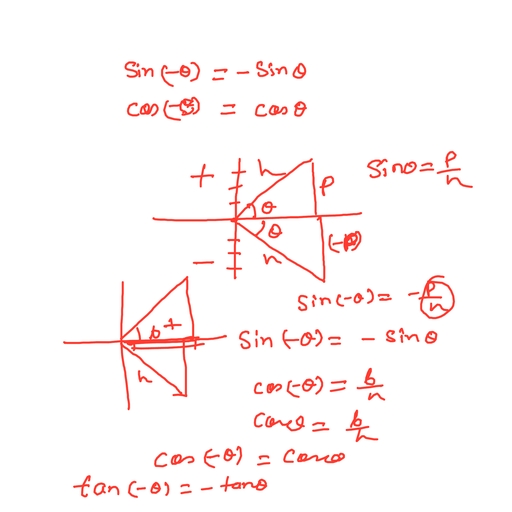 Sin (-θ) = - Sin θ
cos (-θ) = cos θ
+ h p
Sinθ = p/h
θ
θ (-p)
- h
Sin(-θ) = - p/h
b +
h
Sin (-θ) = - sin θ
cos (-θ) = b/h
cosθ = b/h
cos (-θ) = cosθ
tan (-θ) = - tanθ